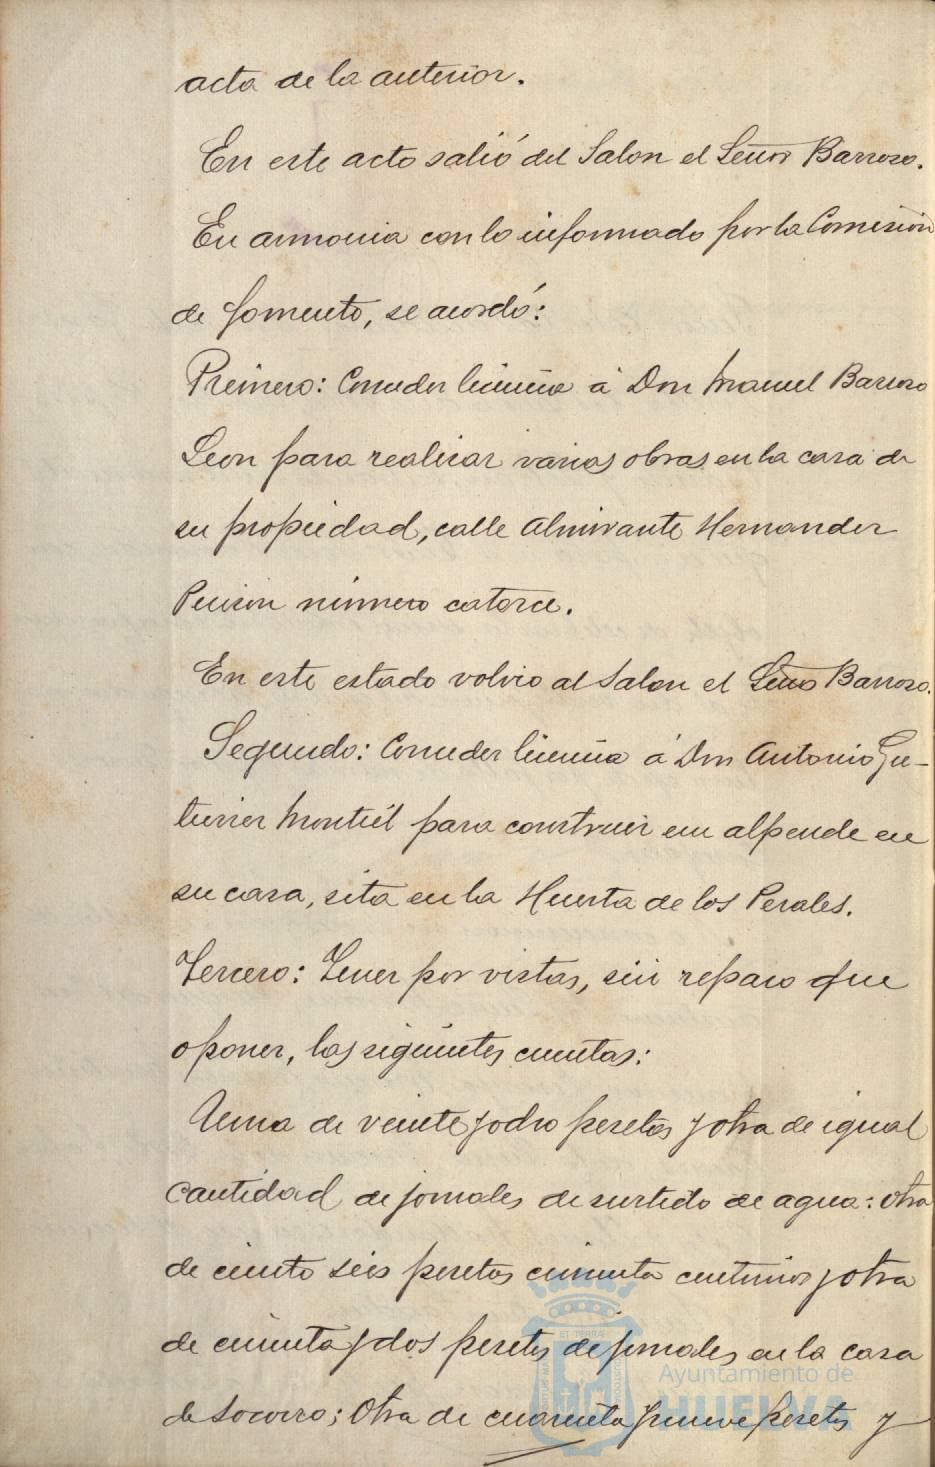 acta de la anterior.
En este acto salió del Salon el Señor Barroso.
En armonia con lo informado por la Comisión
de fomento, se acordó:
Primero: Conceder licencia á Don Manuel Barroso
Leon para realizar varias obras en la casa de
su propiedad, calle Almirante Hernandez
Pinzon número catorce.
En este estado volvio al Salon el Señor Barroso.
Segundo: Conceder licencia á Don Antonio Gu-
tierrez Montiél para construir un alpende en
su casa, sita en la Huerta de los Perales.
Tercero: Tener por vistas, sin reparo que
oponer, las siguientes cuentas:
Una de veinte y ocho pesetas y otra de igual
cantidad de jornales de surtido de agua: otra
de ciento seis pesetas cincuenta centimos y otra
de cincuenta y dos pesetas de jornales en la casa
de Socorro; Otra de cuarenta y nueve pesetas y
Ayuntamiento de
HUELVA